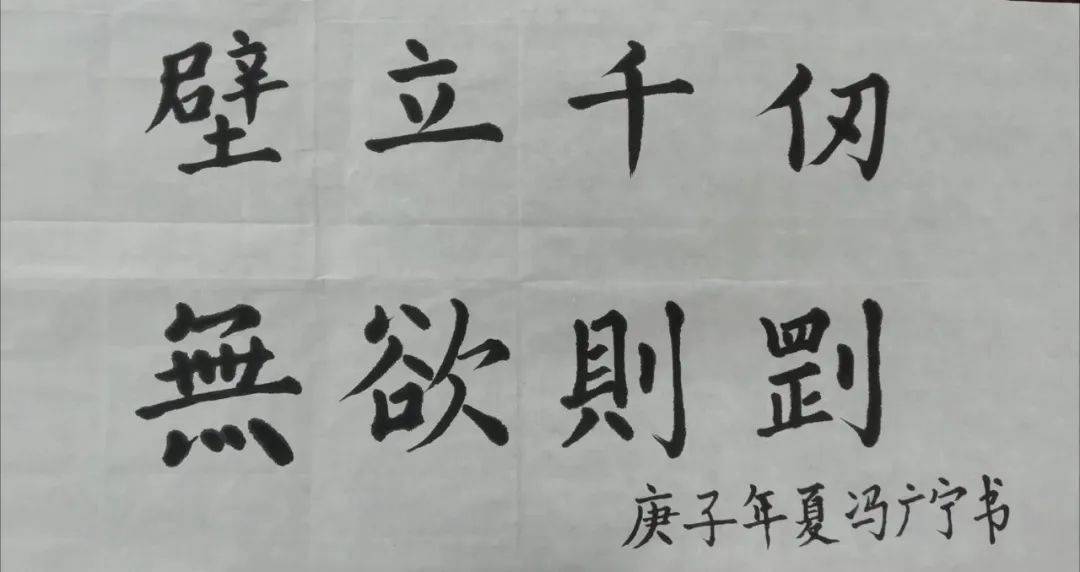 壁立千仞
無欲則剛
庚子年夏冯广宁书